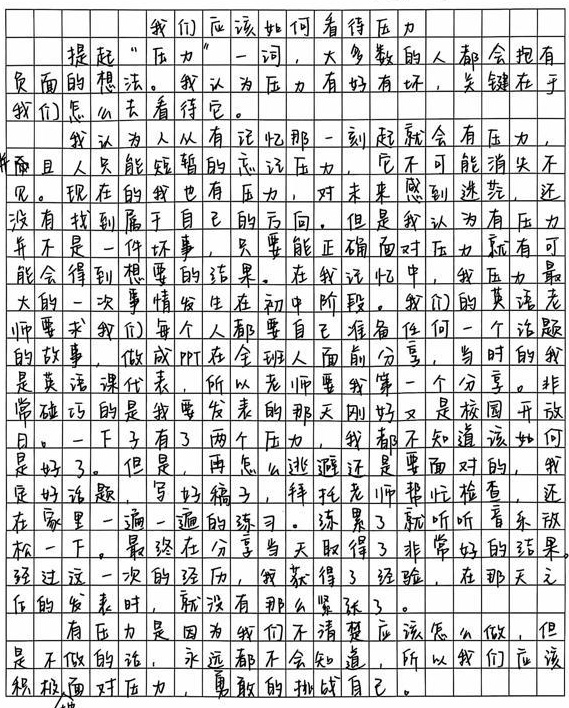 我们应该如何看待压力
提起“压力”一词，大多数的人都会抱有
负面的想法。我认为压力有好有坏，关键在于
我们怎么去看待它。
我认为人从有记忆那一刻起就会有压力，
并且人只能短暂的忘记压力，它不可能消失不
见。现在的我也有压力，对未来感到迷茫，还
没有找到属于自己的方向。但是我认为有压力
并不是一件坏事，只要能正确面对压力就有可
能会得到想要的结果。在我记忆中，我压力最
大的一次事情发生在初中阶段。我们的英语老
师要求我们每个人都要自己准备任何一个话题
的故事，做成PPT在全班人面前分享，当时的我
是英语课代表，所以老师要我第一个分享。非
常碰巧的是我要发表的那天刚好又是校园开放
日。一下子有了两个压力，我都不知道该如何
是好了。但是，再怎么逃避还是要面对的，我
定好话题，写好稿子，拜托老师帮忙检查，还
在家里一遍一遍的练习。练累了就听听音乐放
松一下。最终在分享当天取得了非常好的结果。
经过这一次的经历，我获得了经验，在那天之
后的发表时，就没有那么紧张了。
有压力是因为我们不清楚应该怎么做，但
是不做的话，永远都不会知道，所以我们应该
积极地面对压力，勇敢的挑战自己。